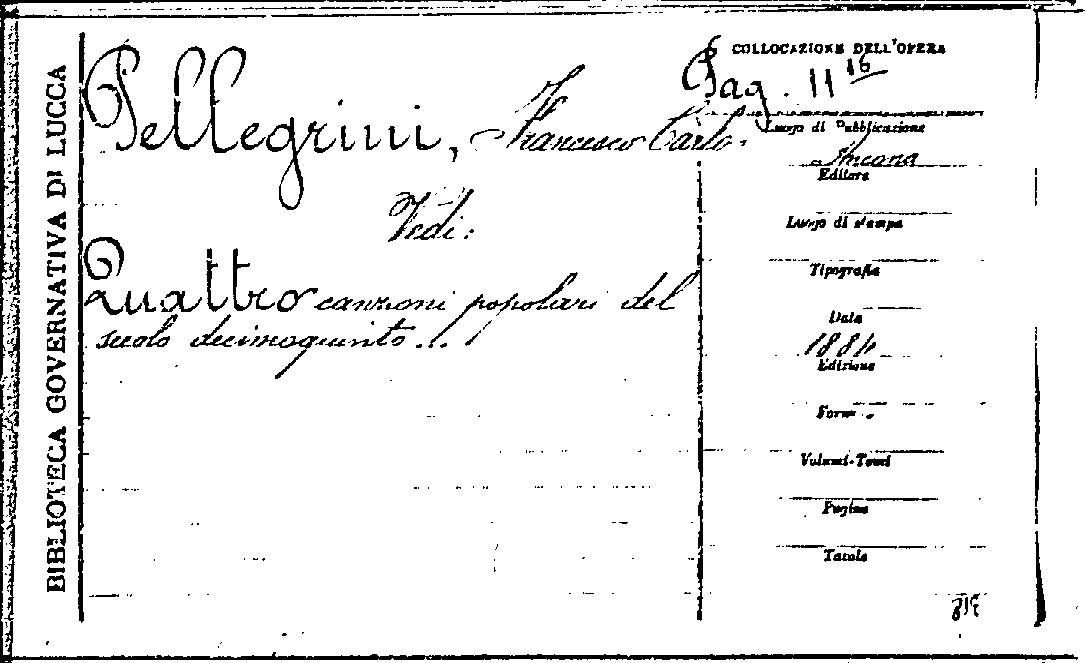 BIBLIOTECA GOVERNATIVA DI LUCCA
Pellegrini, Francesco Carlo.
Vedi:
Quattro canzoni popolari del
secolo decimoquinto...
COLLOCAZIONE DELL'OPERA
Pag. 11 16
Luogo di Pubblicazione
Ancona
Editore
Luogo di stampa
Tipografia
Data
1884
Edizione
Forma
Volumi-Tomi
Pagine
Tavole